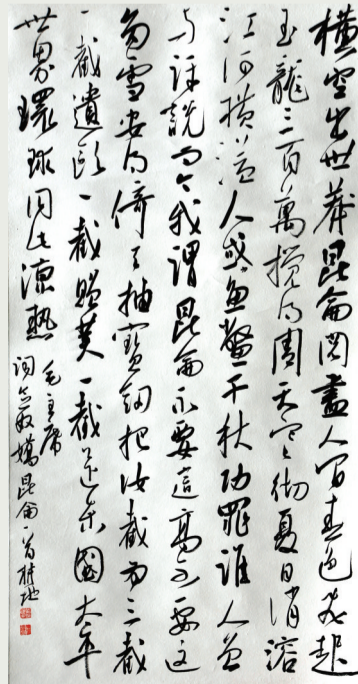 橫空出世莽昆侖閱盡人間春色飛起
玉龍三百萬攪得周天寒徹夏日消溶
江河橫溢人或為魚鱉千秋功罪誰人曾
與評說而今我謂昆侖不要這高不要這
多雪安得倚天抽寶劍把汝裁為三截
一截遺歐一截贈美一截還東國太平
世界環球同此涼熱
毛主席
詞念奴嬌昆侖一首